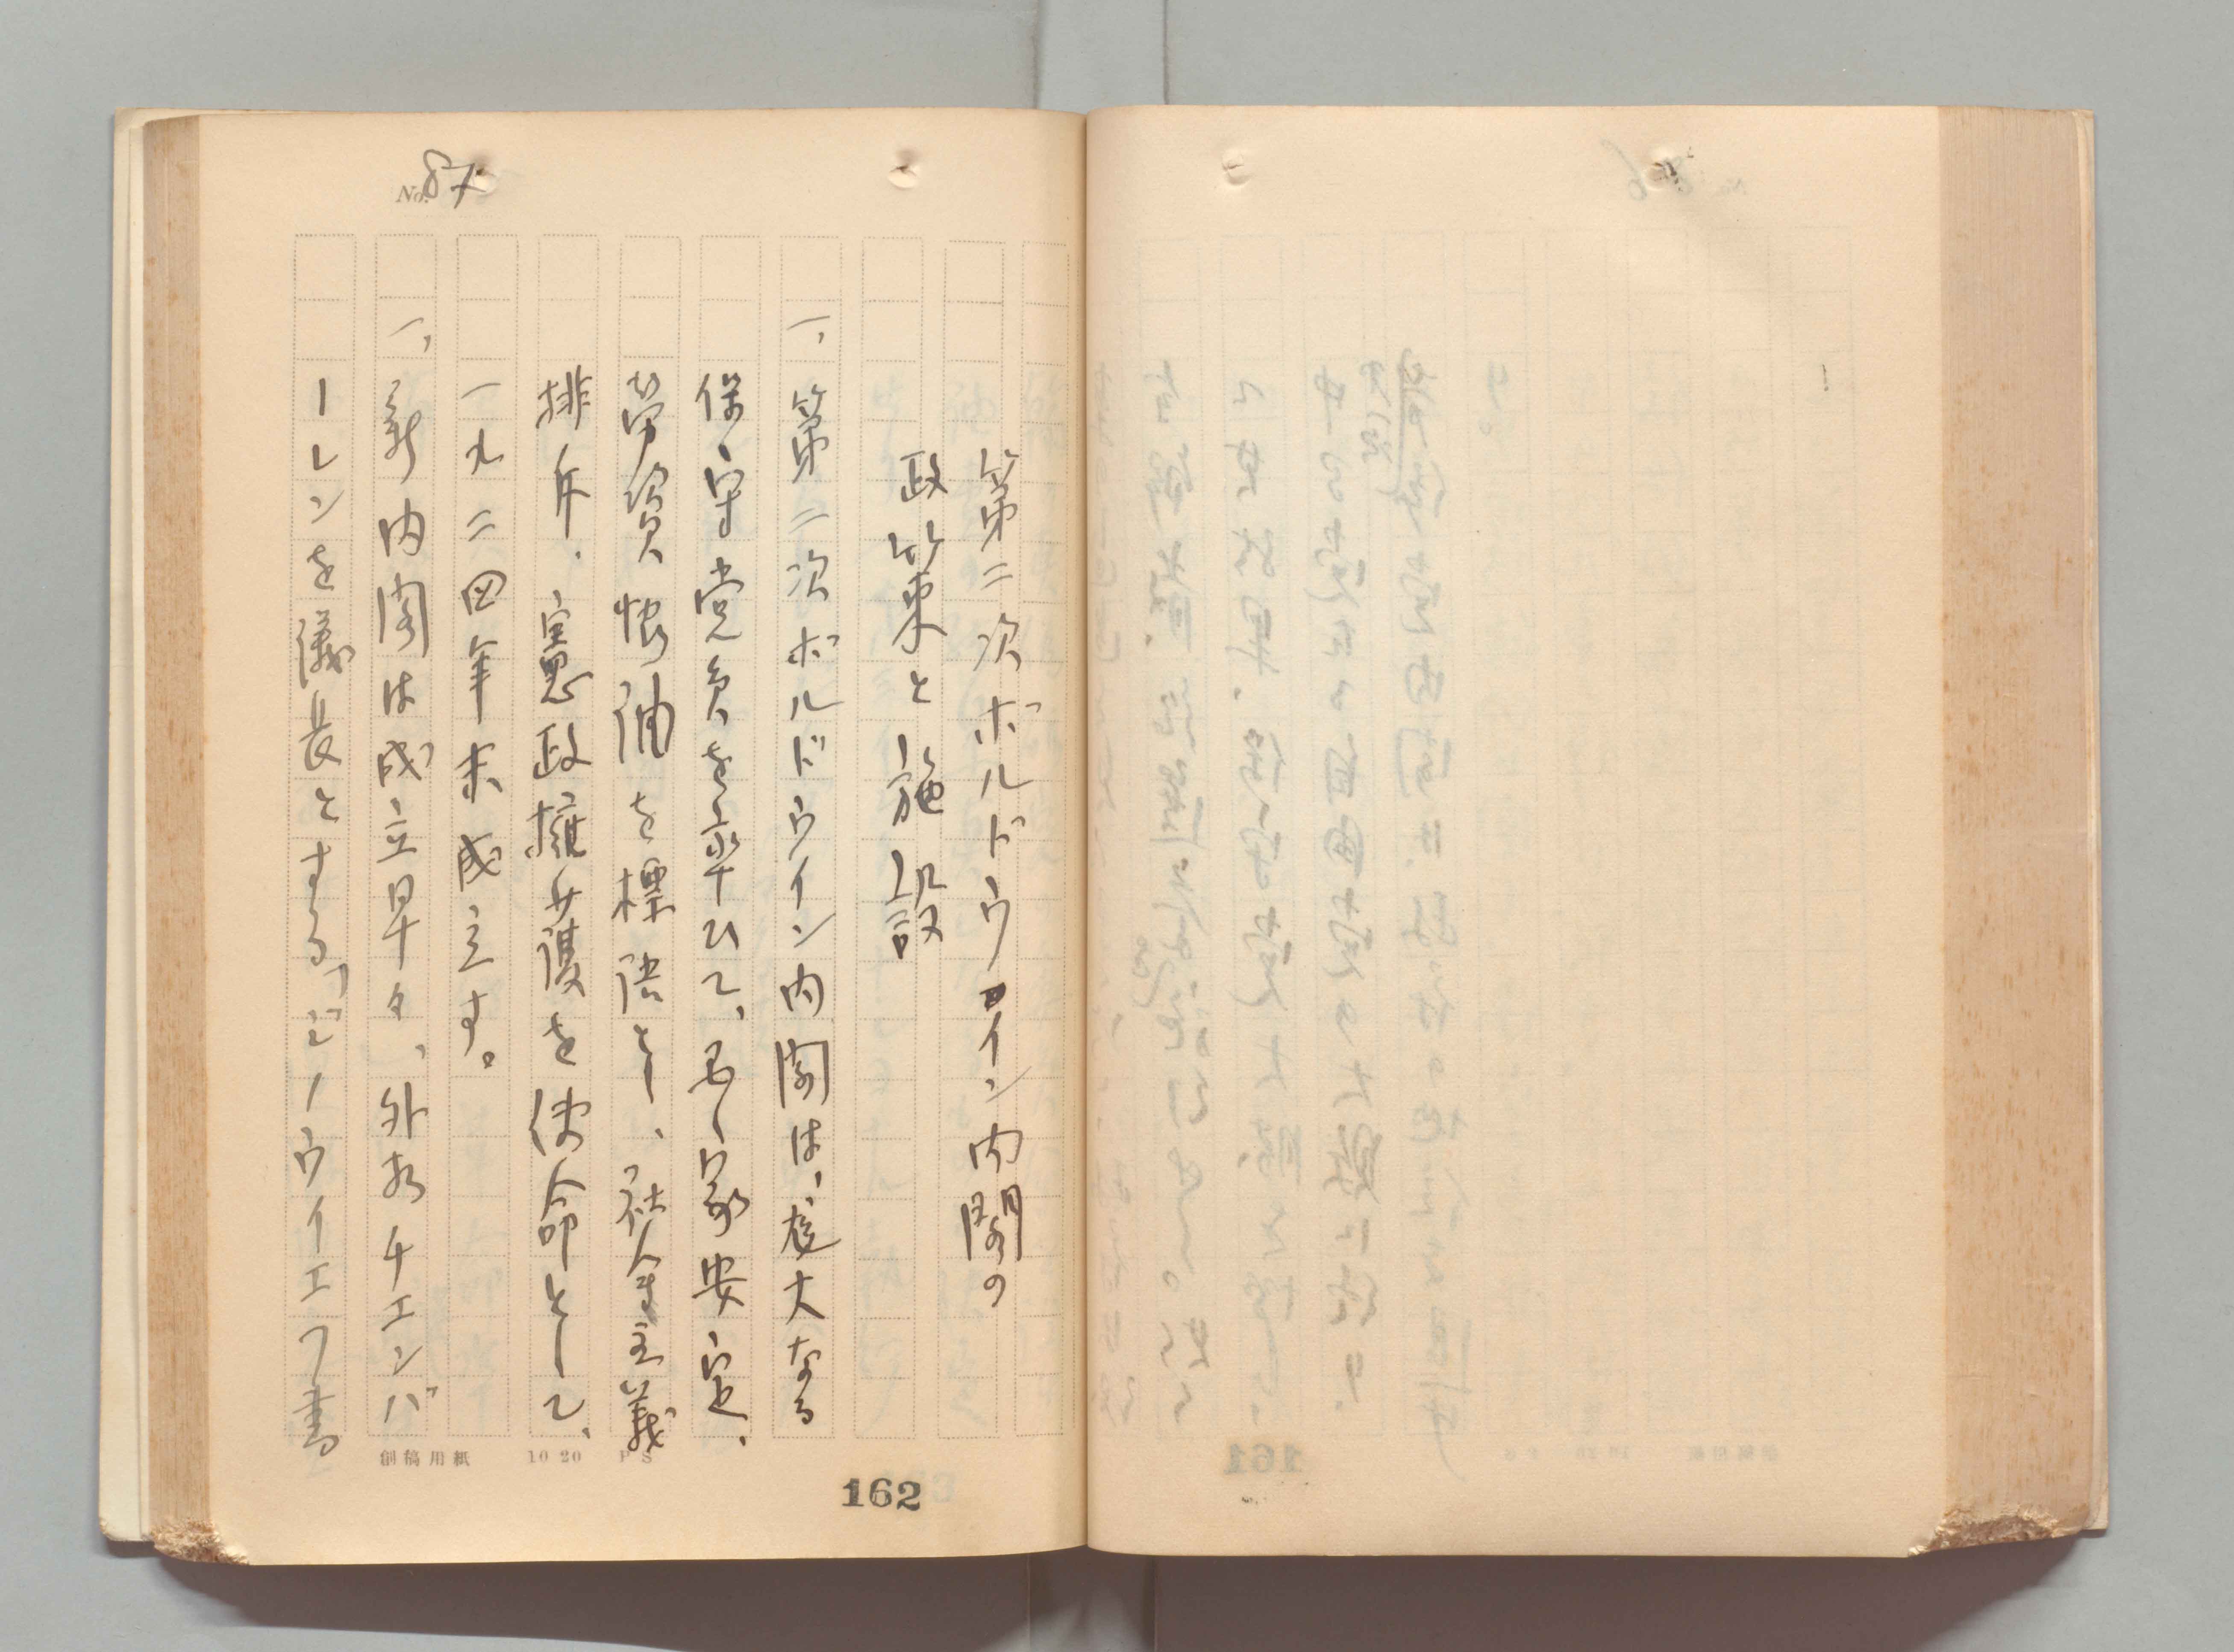 No. 87
第二次ボルドウイン内閣の
政策と施設
一、第二次ボルドウイン内閣は、厖大なる
保守党員を率ひて、家安定、
労資協調を標語とし、社会主義
排斥、憲政擁護を使命として、
一九二四年末成立す。
一、新内閣は成立早々、外相チエンバ
ーレンを議長とする「ジノウイエフ書
創稿用紙 10 20 P S
162